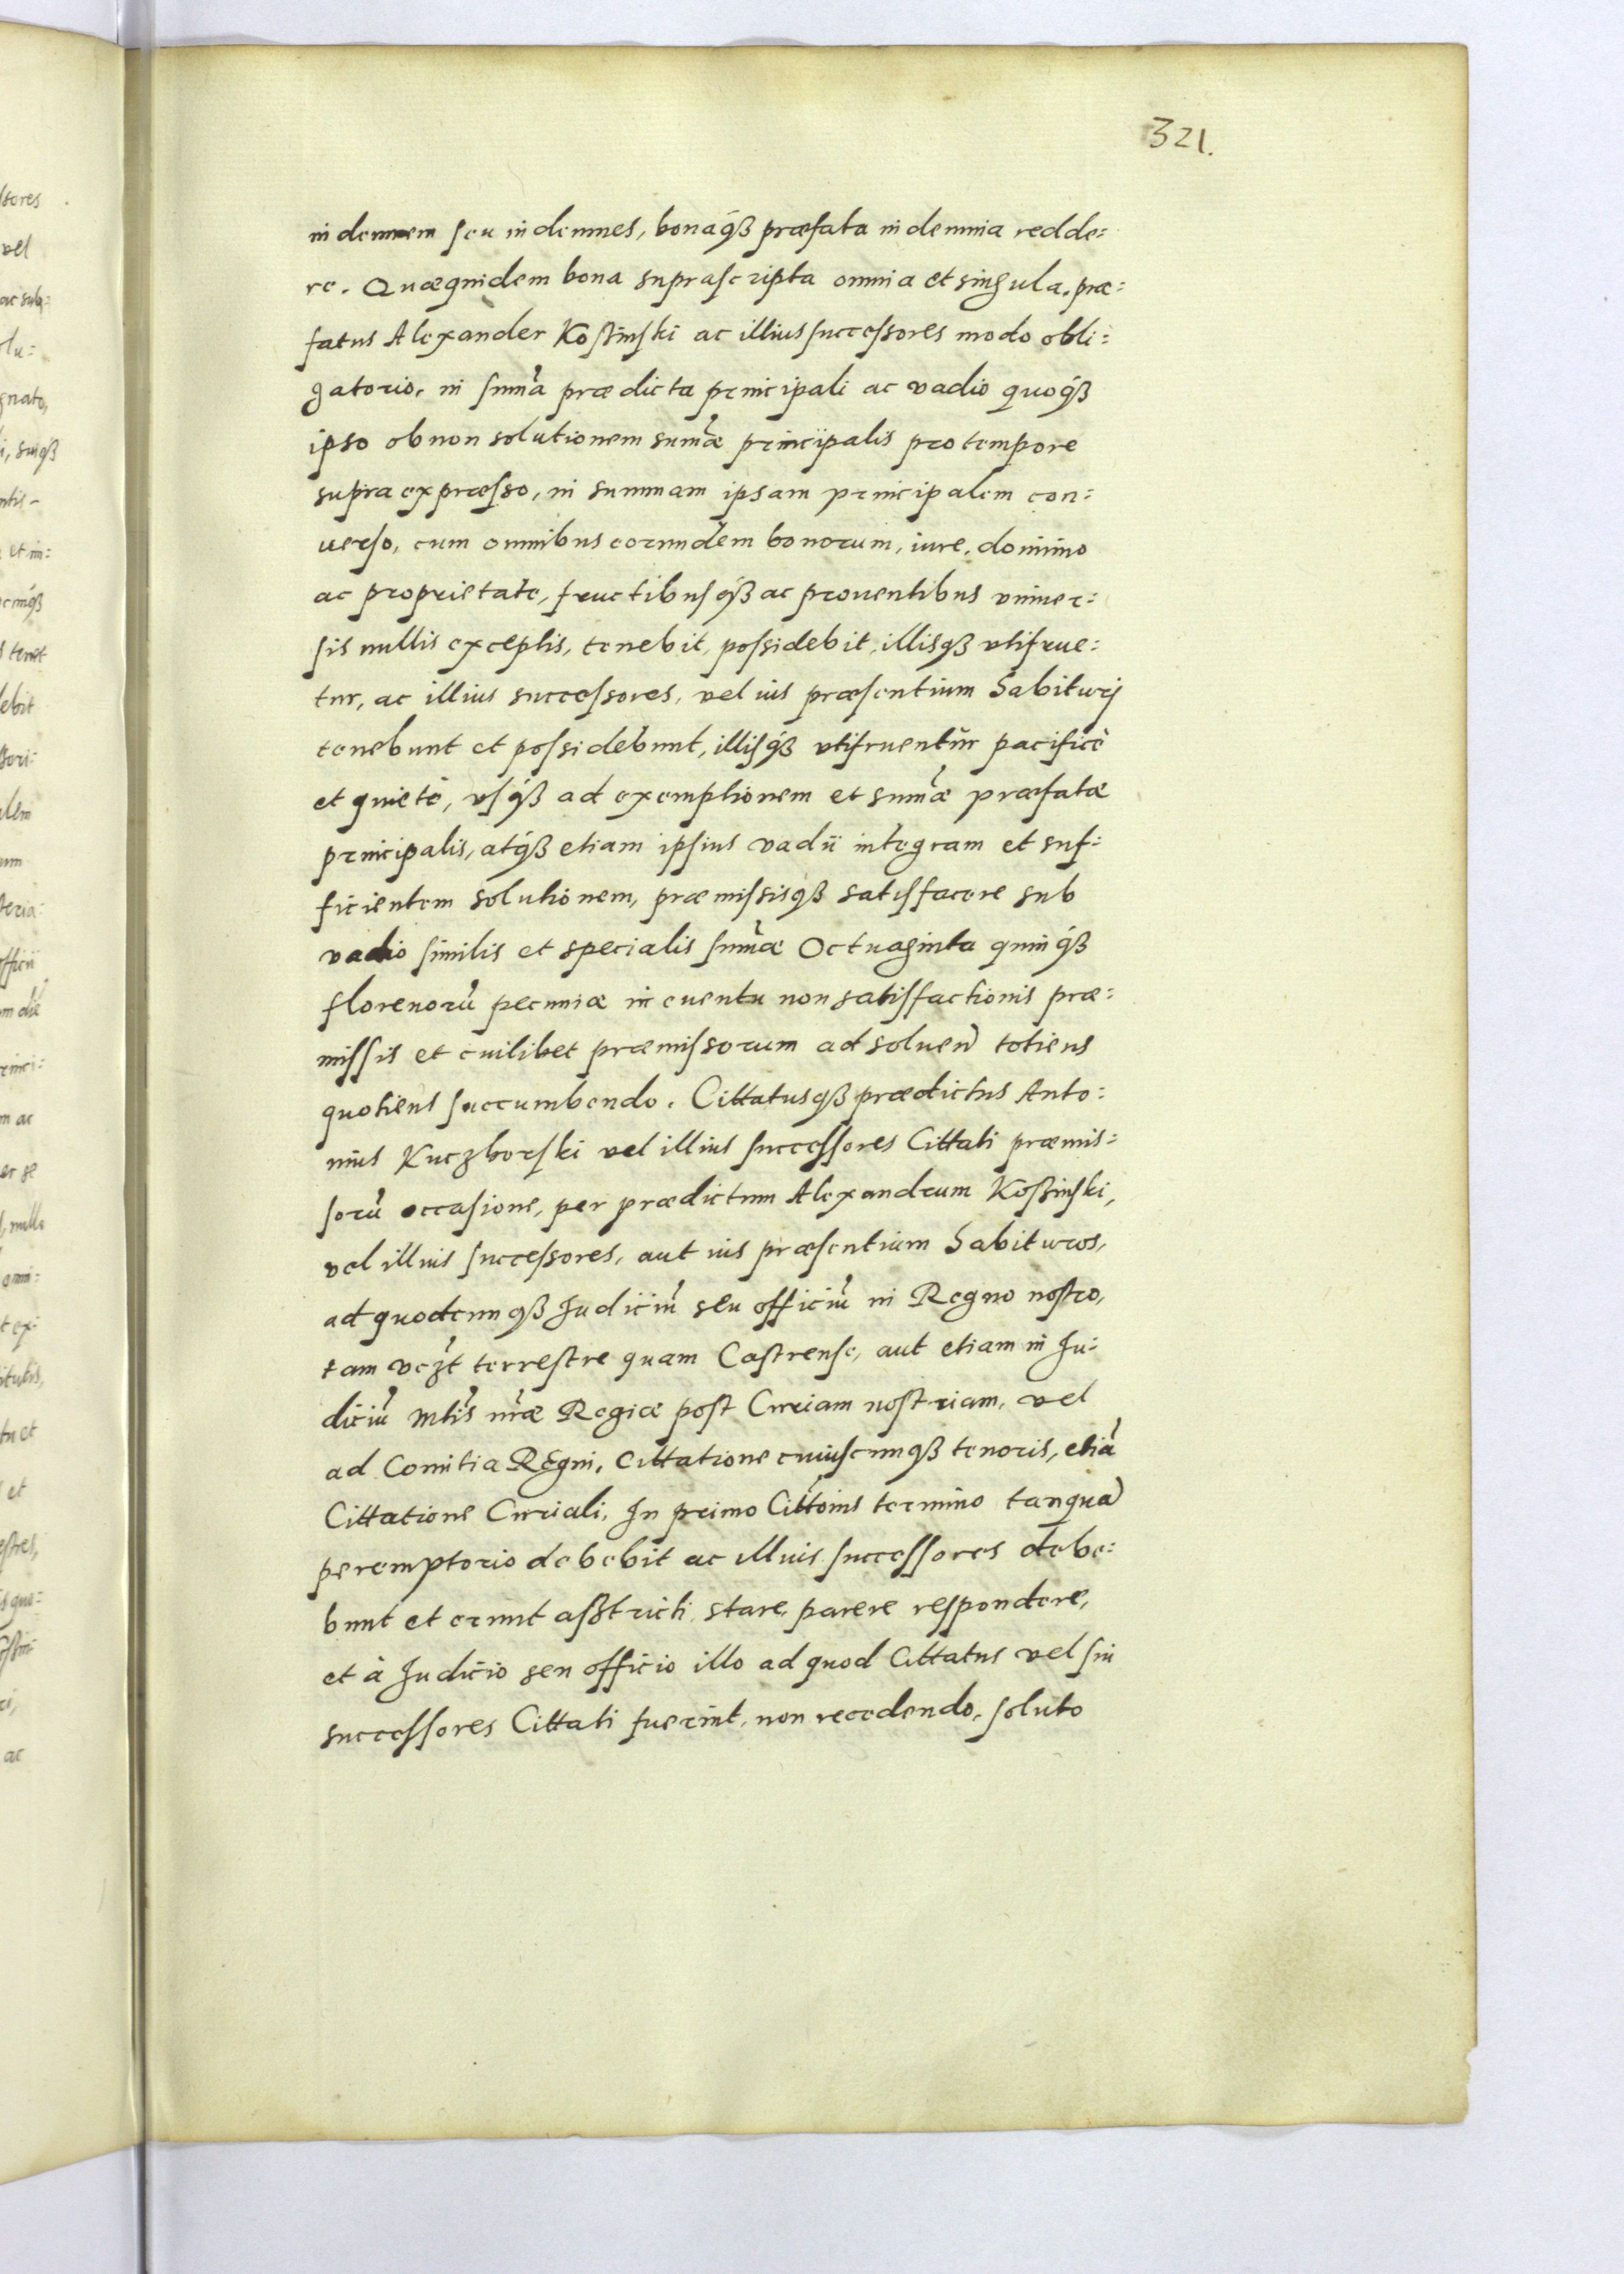 321.
indemnem seu indemnes, bonaq́ꝫ præfata indemnia redde:
re. Quæquidem bona suprascripta omnia et singula, præ:
fatus Alexander Koßinski ac illius successores modo obli:
gatorio, in sum̃a prædicta principali ac vadio quoq́ꝫ
ipso ob non solutionem sum̃æ principalis pro tempore
supra expræsso, in summam ipsam principalem con:
uerso, cum omnibus eorundem bonorum, iure, dominio
ac proprietate, fructibusq́ꝫ ac prouentibus vniuer:
sis nullis exceptis, tenebit, possidebit, illisqꝫ vtifrue:
tur, ac illius successores, vel ius præsentium habituri
tenebunt et possidebunt, illisq́ꝫ vtifruentur pacificè
et quietè, vsq́ꝫ ad exemptionem et sum̃æ præfatæ
principalis, atq́ꝫ etiam ipsius vadii integram et suf:
ficientem solutionem, præmissisqꝫ satisfacere sub
vadio similis et specialis sum̃æ Octuaginta quinq́ꝫ
florenorũ pecuniæ in euentu non satisfactionis præ:
missis et cuilibet præmissorum ad soluen̄ totiens
quotiens succumbendo. Cittatusqꝫ prædictus Anto:
nius Kuczborski vel illius successores Cittati præmis:
sorũ occasione, per prædictum Alexandrum Koßinski,
vel illius successores, aut ius præsentium habituros,
ad quodcunqꝫ Iudiciũ seu officiũ in Regno nostro,
tam vꝫt̃ terrestre quam Castrense, aut etiam in Iu:
diciũ Mtis̃ nr̃æ Regiæ post Curiam nostriam, vel
ad Comitia Regni, Cittatione cuiuscunqꝫ tenoris, etiã
Cittatione Curiali, In primo Citt̃onis termino tanquã
peremptorio debebit ac illius successores debe:
bunt et erunt aßtricti, stare, parere respondere,
et à Iudicio seu officio illo ad quod Cittatus vel sui
successores Cittati fuerint, non recedendo, soluto